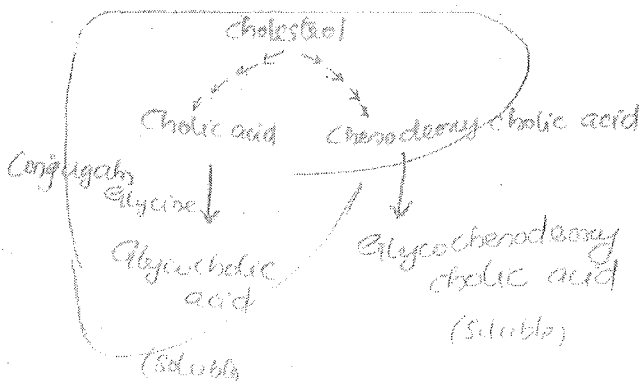 Cholestrol
Cholic acid
Chenodeoxy cholic acid
Conjugatn
Glycine
Glycocholic
acid
(Soluble)
Glycochenodeoxy
cholic acid
(Soluble)